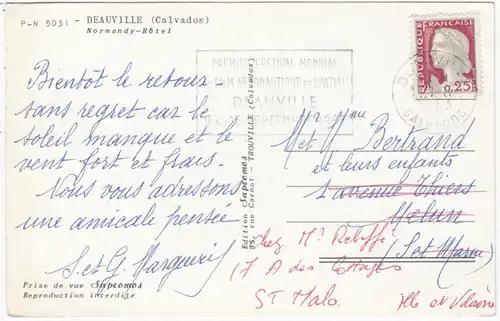 P-N 5031 - DEAUVILLE (Calvados)
Normandy-Hôtel
REPUBLIQUE FRANCAISE
0,25
PREMIER FESTIVAL MONDIAL
FILM AERONAUTIQUE et SPATIAL
DEAUVILLE
SEPTEMBRE
DEAUVILLE
CALVADOS
Bientôt le retour -
sans regret car le
soleil manque et le
vent fort et frais.
Nous vous adressons
une amicale pensée
S. et G.
Edition Supcomos
rue Carnot - TROUVILLE (Calvados)
M. et Mme Bertrand
et leurs enfants
1 avenue Thiers
Melun
(S. et Marne)
chez Mr
17 A des Cottages
St Malo. Ille et Vilaine
Prise de vue Supcomos
Reproduction interdite